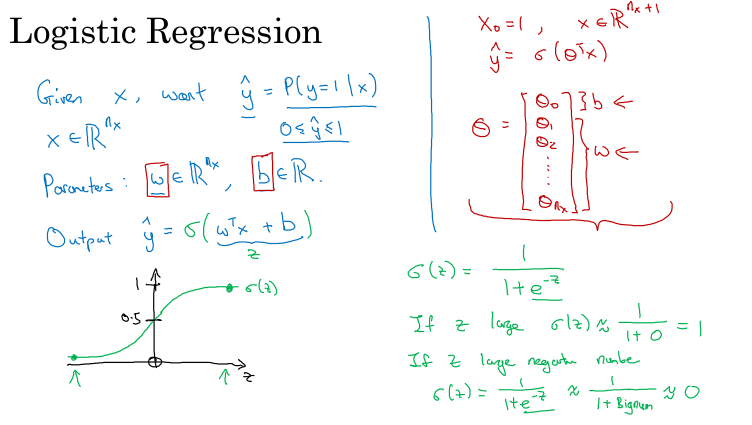 Logistic Regression
Given x, want ŷ = P(y=1|x)
x ∈ ℝ^{n_x}
0 ≤ ŷ ≤ 1
Parameters: w ∈ ℝ^{n_x}, b ∈ ℝ.
Output ŷ = σ(w^T x + b)
z
1
σ(z)
0.5
z
x_0 = 1, x ∈ ℝ^{n_x+1}
ŷ = σ(θ^T x)
θ = [θ_0 θ_1 θ_2 ⋮ θ_{n_x}] } b ← } w ←
σ(z) = 1/(1+e^{-z})
If z large σ(z) ≈ 1/(1+0) = 1
If z large negative number
σ(z) = 1/(1+e^{-z}) ≈ 1/(1+Bignum) ≈ 0